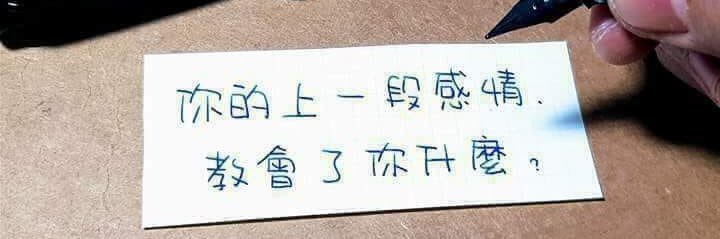 你的上一段感情.
教會了你什麼?